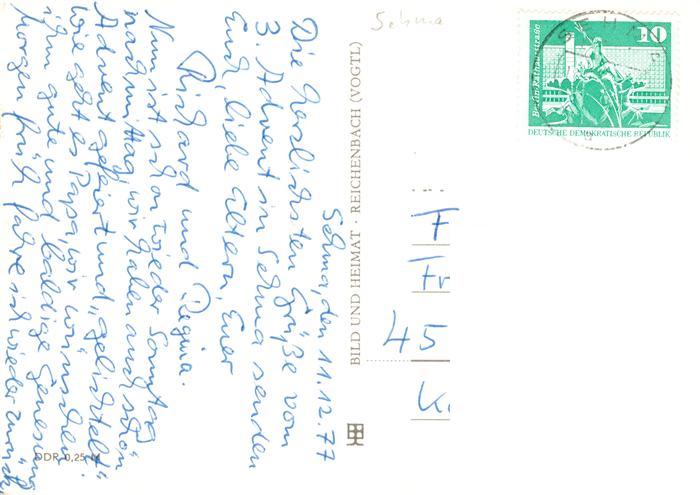 Sehma
Sehma, den 11.12.77
Die herzlichsten Grüße vom
3. Advent in Sehma senden
Euch, liebe Eltern, Euer
Richard und Regina.
Nun ist schon wieder Sonntag
nachmittag, wir haben auch schön
Advent gefeiert und "gelichtelt".
Wie geht es Papa, wir wünschen
ihm gute und baldige Genesung
Morgen früh fahre ich wieder zurück
DDR 0,25 M
BILD UND HEIMAT · REICHENBACH (VOGTL)
Berlin · Rathausstraße
10
DEUTSCHE DEMOKRATISCHE REPUBLIK
SEHMA
F
Fr
45
K